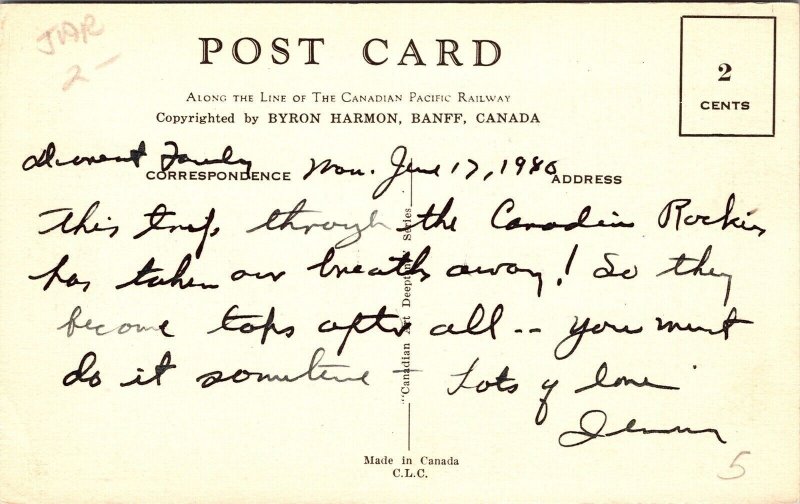 JAR
2-
POST CARD
2
CENTS
ALONG THE LINE OF THE CANADIAN PACIFIC RAILWAY
Copyrighted by BYRON HARMON, BANFF, CANADA
Dearest Family
CORRESPONDENCE
Mon. June 17, 1940
ADDRESS
This trip through the Canadian Rockies
has taken our breath away! So they
become tops after all -- You must
do it sometime - Lots of love
"Canadian Art Deeptone" Series
Made in Canada
C.L.C.
5